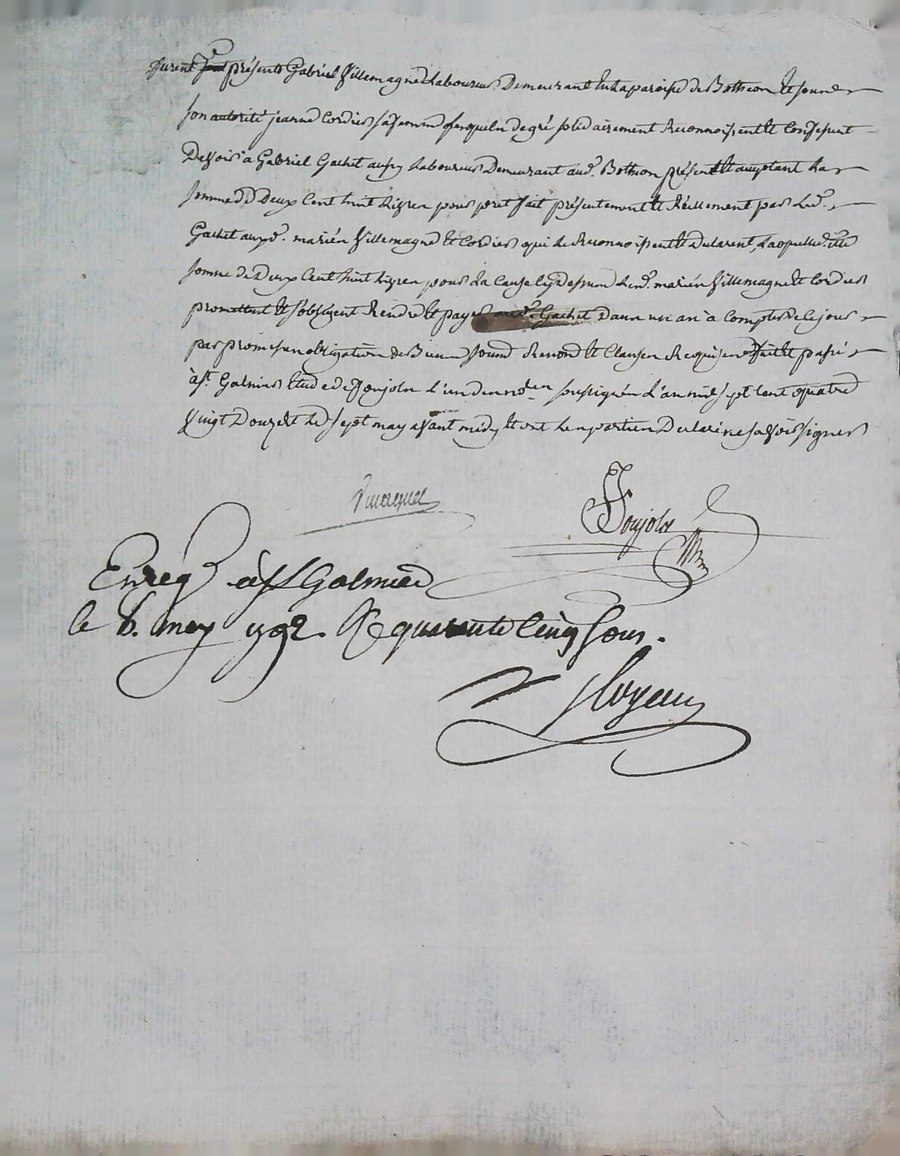 furent présents Gabriel Villemagne Laboureur Demeurant en la paroisse de Botheon et sous
son autorité jeanne Cordier sa femme lesquels de gré solidairement Reconnoissent et Confessent
Devoir à Gabriel Gachet aussy Laboureur Demeurant aud. Botheon présent et acceptant La
somme De Deux Cent huit Livres pour prêt fait présentement et Réellement par led.
Gachet auxd. mariés Villemagne et Cordier qui le Reconnoissent et Declarent, Laquelle
somme de Deux Cent huit Livres pour La Cause cy Dessus Lesd. mariés Villemagne et Cordier
promettent et s'obligent Rendre et payer aud. Gachet Dans un an à Compter de Ce jour
par promesses obligation de Biens soumd. Renond. et Clauses Requises fait et passé
à St. Galmier Etude de l'un des no.res soussignés l'an mil sept Cent quatre
Vingt Douze et Le sept may avant midy et ont Les parties Declaré ne savoir signer
Enreg. à St Galmier
le 8. may 1792. R quarante cinq sous.